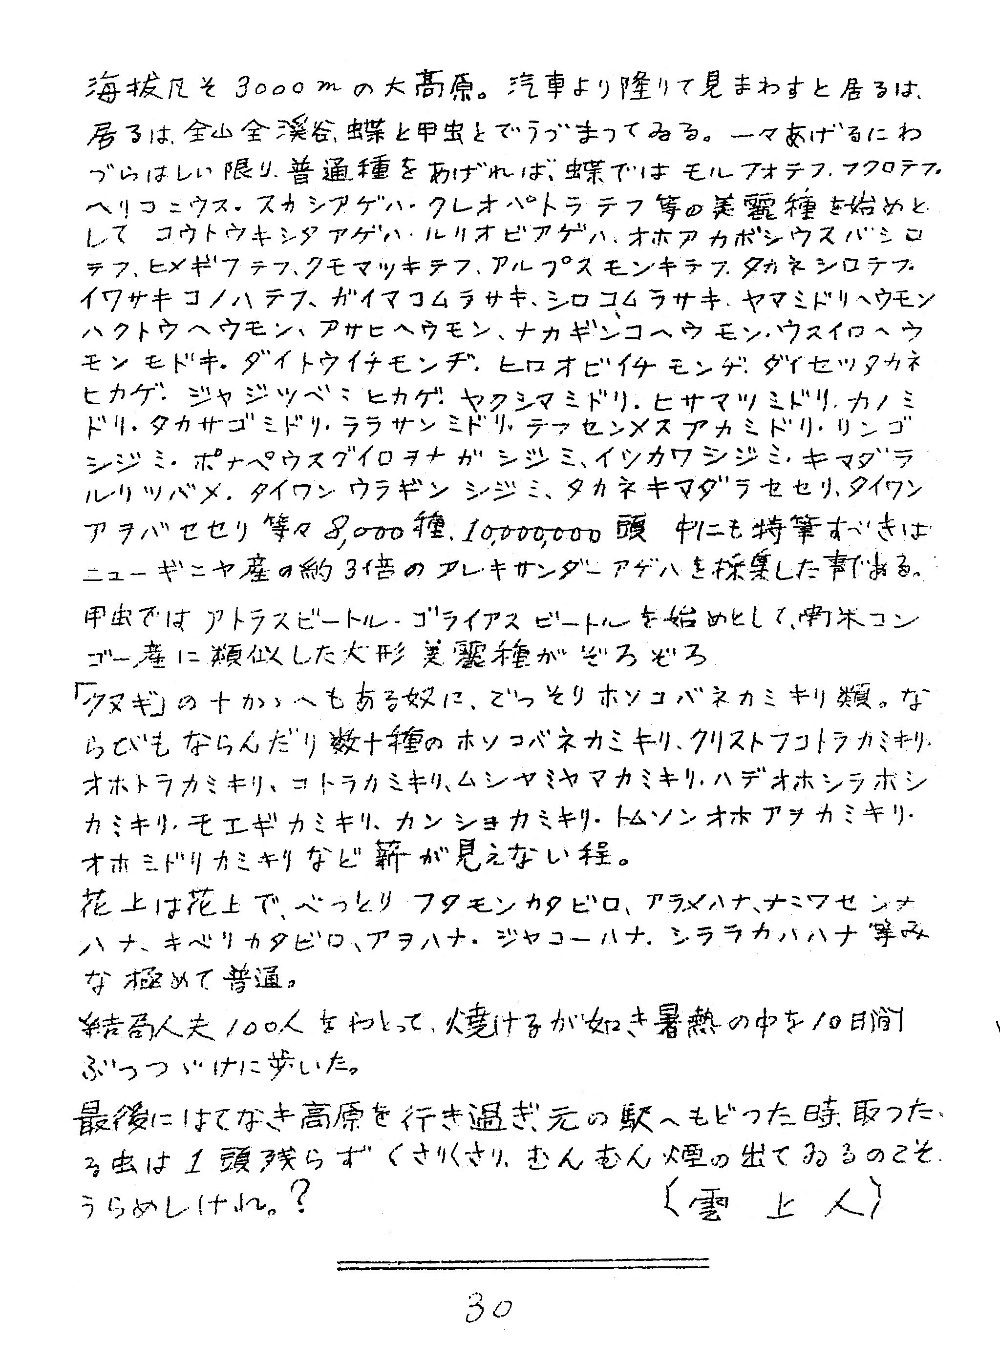 海抜凡そ3000mの大高原。汽車より降りて見まわすと居るは、
居るは、全山全溪谷、蝶と甲虫とでうづまつてゐる。一々あげるにわ
づらはしい限り、普通種をあげれば、蝶ではモルフォテフ、フクロテフ、
ヘリコニウス・スカシアゲハ・クレオパトラテフ等の美麗種を始めと
して コウトウキシタアゲハ・ルリオビアゲハ、オホアカボシウスバシロ
テフ、ヒメギフテフ、クモマツキテフ、アルプスモンキテフ、タカネシロテフ、
イワサキコノハテフ、ガイマコムラサキ、シロコムラサキ、ヤマミドリヘウモン
ハクトウヘウモン、アサヒヘウモン、ナカギンコヘウモン・ウスイロヘウ
モンモドキ。ダイトウイチモンヂ、ヒロオビイチモンヂ、ダイセツタカネ
ヒカゲ、ジャジツベニヒカゲ、ヤクシマミドリ、ヒサマツミドリ、カノミ
ドリ・タカサゴミドリ・ララサンミドリ・テフセンメスアカミドリ・リンゴ
シジミ・ポナペウスグイロヲナガシジミ、イシカワシジミ・キマダラ
ルリツバメ・タイワンウラギンシジミ、タカネキマダラセセリ、タイワン
アヲバセセリ等々8,000種、10,000,000頭 中にも特筆すべきは
ニューギニヤ産の約3倍のアレキサンダーアゲハを採集した事である。
甲虫ではアトラスビートル・ゴライアスビートルを始めとして、南米コン
ゴー産に類似した大形美麗種がぞろぞろ
「クヌギ」のナカヽへもある奴に、でつそりホソコバネカミキリ類。な
らびもならんだり数十種のホソコバネカミキリ、クリストフコトラカミキリ、
オホトラカミキリ、コトラカミキリ、ムシヤミヤマカミキリ・ハデオホシラホシ
カミキリ・モエギカミキリ、カンショカミキリ・トムソンオホアヲカミキリ・
オホミドリカミキリなど薪が見えない程。
花上は花上で、べっとりフタモンカタビロ、アラメハナ、ナミワセンナ
ハナ、キベリカタビロ、アヲハナ・ジャコーハナ、シララカハハナ等み
な極めて普通。
結局人夫100人をやとって、焼けるが如き暑熱の中を10日間
ぶつつゞけに歩いた。
最後にはてなき高原を行き過ぎ、元の駅へもどつた時、取つた、
る虫は1頭残らずくさりくさり、むんむん煙の出てゐるのこそ、
うらめしけれ。?（雲上人）
30